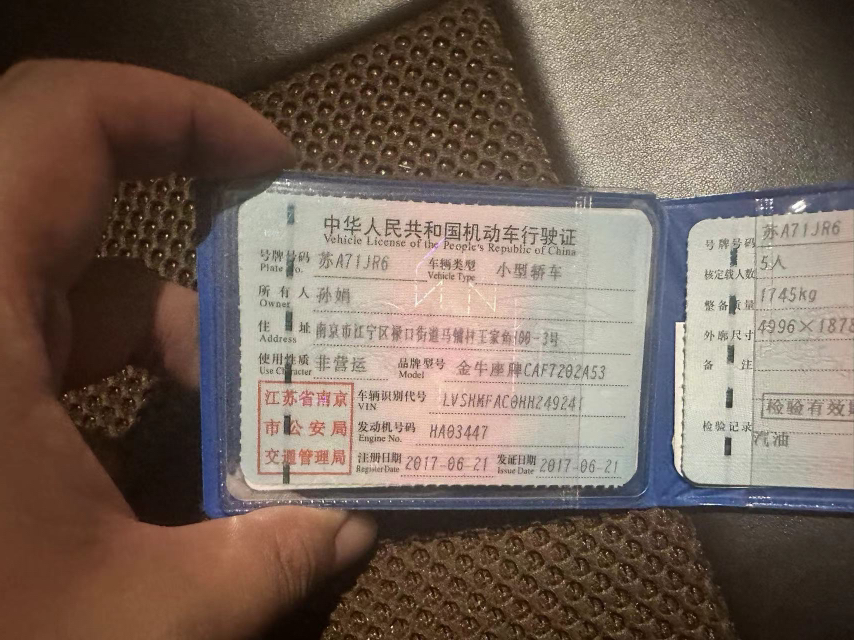 中华人民共和国机动车行驶证
Vehicle License of the People's Republic of China
号牌号码 苏A71JR6 车辆类型 小型轿车
Plate No. Vehicle Type
所有人 孙娟
Owner
住址 南京市江宁区禄口街道马铺村王家
Address
使用性质 非营运 品牌型号 金牛座牌CAF7202A53
Use Character Model
江苏省南京
市公安局
交通管理局
车辆识别代号
VIN
发动机号码 HA03447
Engine No.
注册日期 2017-06-21 发证日期 2017-06-21
Register Date Issue Date
号牌号码 苏A71JR6
核定载人数 5人
整备质量 1745kg
外廓尺寸 4996×1878
备注
检验有效期
检验记录
汽油